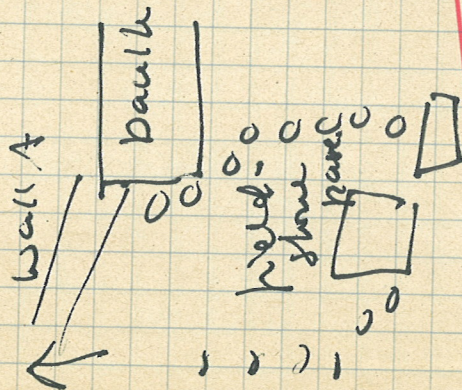 Wall A
baulk
Field-
stone